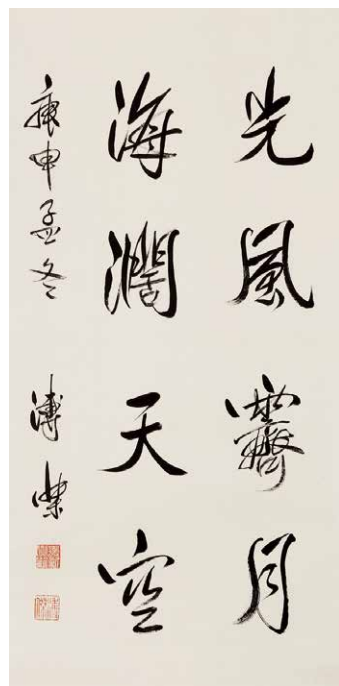 光風霽月
海濶天空
庚申孟冬
溥傑